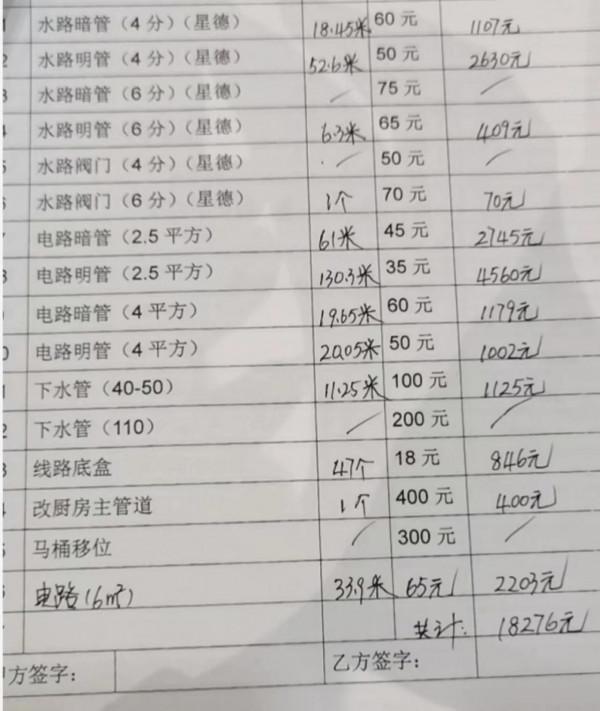 1 水路暗管（4 分）（星德） 18.45米 60 元 1107元
2 水路明管（4 分）（星德） 52.6米 50 元 2630元
3 水路暗管（6 分）（星德） / 75 元 /
4 水路明管（6 分）（星德） 6.3米 65 元 409元
5 水路阀门（4 分）（星德） / 50 元 /
6 水路阀门（6 分）（星德） 1个 70 元 70元
7 电路暗管（2.5 平方） 61米 45 元 2745元
8 电路明管（2.5 平方） 130.3米 35 元 4560元
电路暗管（4 平方） 19.65米 60 元 1179元
0 电路明管（4 平方） 20.05米 50 元 1002元
1 下水管（40-50） 11.25米 100 元 1125元
2 下水管（110） / 200 元 /
3 线路底盒 47个 18 元 846元
4 改厨房主管道 1个 400 元 400元
5 马桶移位 / 300 元 /
电路（6m²） 33.9米 65元 2203元
共计： 18276元
甲方签字： 乙方签字：